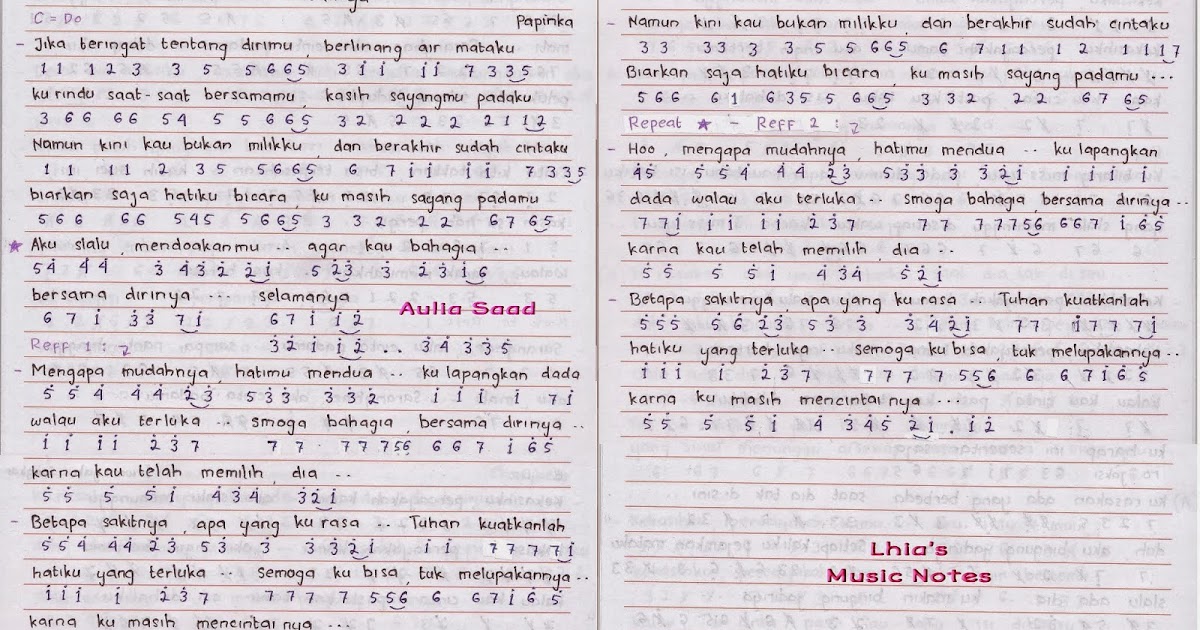 C = Do
Papinka
- Jika teringat tentang dirimu berlinang air mataku
1 1 1 2 3 3 5 5 6 6 5 3 i̇ i̇ i̇ i̇ 7 3 3 5
ku rindu saat-saat bersamamu, kasih sayangmu padaku
3 6 6 6 6 5 4 5 5 6 6 5 3 2 2 2 2 2 1 1 2
Namun kini kau bukan milikku, dan berakhir sudah cintaku
1 1 1 1 2 3 5 5 6 6 5 6 7 i̇ i̇ i̇ i̇ 7 3 3 5
biarkan saja hatiku bicara ku masih sayang padamu
5 6 6 6 6 5 4 5 5 6 6 5 3 3 2 2 2 6 7 6 5
★ Aku slalu, mendoakanmu, agar kau bahagia...
bersama dirinya selamanya
6 7 i̇ 3̇ 3̇ 7 i̇ 6 7 i̇ i̇ 2̇
Aulia Saad
Reff 1 : z 3̇ 2̇ i̇ i̇ 2̇ ... 3̇ 4̇ 3̇ 3̇ 5̇
- Mengapa mudahnya, hatimu mendua .. ku lapangkan dada
5̇ 5̇ 4̇ 4̇ 4̇ 2̇ 3̇ 5̇ 3̇ 3̇ 3̇ 3̇ 2̇ i̇ i̇ i̇ i̇ 7 i̇
walau aku terluka ... smoga bahagia, bersama dirinya..
i̇ i̇ i̇ i̇ 2̇ 3̇ 7 7 7 7 7 7 5 6 6 6 7 i̇ 6 5
karna kau telah memilih dia ...
5̇ 5̇ 5̇ 5̇ i̇ 4̇ 3̇ 4̇ 3̇ 2̇ i̇
- Betapa sakitnya, apa yang ku rasa .. Tuhan kuatkanlah
5̇ 5̇ 4̇ 4̇ 4̇ 2̇ 3̇ 5̇ 3̇ 3̇ 3̇ 3̇ 2̇ i̇ i̇ i̇ 7 7 7 7 i̇
hatiku yang terluka ... semoga ku bisa tuk melupakannya..
i̇ i̇ i̇ i̇ 2̇ 3̇ 7 7 7 7 7 5 5 6 6 6 7 i̇ 6 5
karna ku masih mencintai nya ...
- Namun kini kau bukan milikku, dan berakhir sudah cintaku
3 3 3 3 3 3 5 5 6 6 5 6 7 1 1 1 2 1 1 1 7
Biarkan saja hatiku bicara ku masih sayang padamu ...
5 6 6 6 1 6 3 5 5 6 6 5 3 3 2 2 2 6 7 6 5
Repeat ★ - Reff 2 : z
- Hoo, mengapa mudahnya, hatimu mendua .. ku lapangkan
4̇5̇ 5̇ 5̇ 4̇ 4̇ 4̇ 2̇ 3̇ 5̇ 3̇ 3̇ 3̇ 3̇ 2̇ i̇ i̇ i̇ i̇ i̇
dada walau aku terluka ... smoga bahagia bersama dirinya..
7 7 i̇ i̇ i̇ i̇ i̇ 2̇ 3̇ 7 7 7 7 7 7 5 6 6 6 7 i̇ 6 5
karna kau telah memilih dia ..
5̇ 5̇ 5̇ 5̇ i̇ 4̇ 3̇ 4̇ 5̇ 2̇ i̇
- Betapa sakitnya apa yang ku rasa .. Tuhan kuatkanlah
5̇ 5̇ 5̇ 5̇ 6̇ 2̇ 3̇ 5̇ 3̇ 3̇ 3̇ 4̇ 2̇ i̇ 7 7 i̇ 7 7 7 i̇
hatiku yang terluka .. semoga ku bisa tuk melupakannya ..
i̇ i̇ i̇ i̇ 2̇ 3̇ 7 7 7 7 7 5 5 6 6 6 7 i̇ 6 5
karna ku masih mencintai nya ...
5̇ 5̇ 5̇ 5̇ i̇ 4̇ 3̇ 4̇ 5̇ 2̇ i̇ . i̇ 2̇
Lhia's
Music Notes